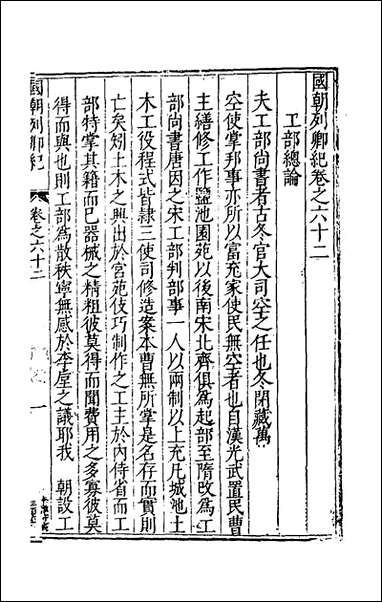 國朝列卿紀卷之六十二
工部總論
夫工部尚書者古冬官大司空之任也冬閉藏萬
空使掌邦事亦所以富充家使民無空者也自漢光武置民曹
主繕修工作鹽池園苑以後南宋北齊俱爲起部至隋改爲工
部尚書唐因之宋工部判部事一人以兩制以上充凡城池土
木工役程式皆隸三使司修造案本曹無所掌是名存而實則
亡矣矧土木之興出於宮苑伎巧制作之工主於內侍省而工
部特掌其籍而已器械之精粗彼莫得而聞費用之多寡彼莫
得而與也則工部為散秩寧無感於李垕之議耶我 朝設工
國朝列卿紀 卷之六十二 一